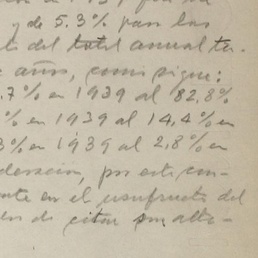 y de 5.3% para los
del total anual te-
años, como sigue:
.7% en 1939 al 82.8%
% en 1939 al 14,4% en
3% en 1939 al 2,8% en
deración, por este con-
nte en el usufructo del
de citar